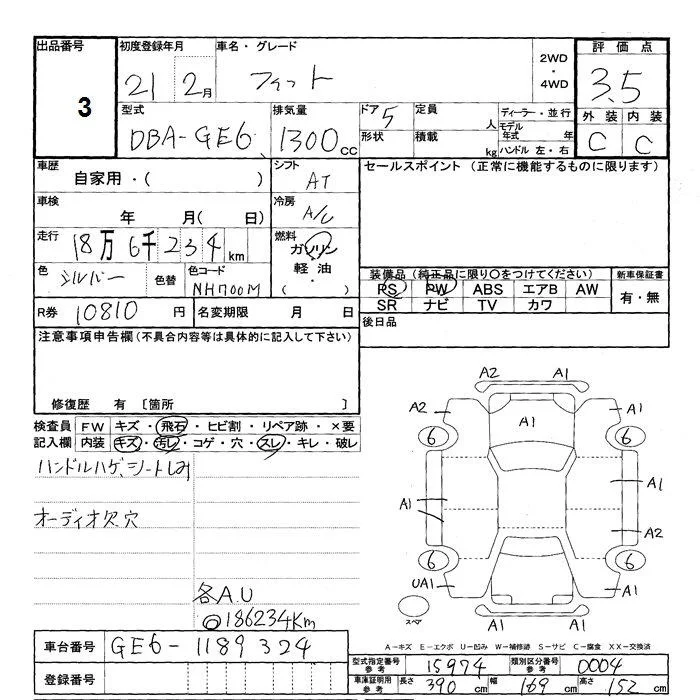 出品番号 3
初度登録年月 21 2月
車名・グレード フィット
2WD・4WD
評価点 3.5
外装 内装
C C
型式 DBA-GE6
排気量 1300cc
ドア 5
形状
定員 人
積載 kg
ディーラー・並行
モデル年式 年
ハンドル 左・右
車歴 自家用・( )
シフト AT
セールスポイント (正常に機能するものに限ります)
車検 年 月( 日)
冷房 A/C
走行 18万6千234km
燃料 ガソリン
軽油
・( )
色 シルバー 色替
色コード NH700M
装備品 (純正品に限り○をつけてください)
PS PW ABS エアB AW
SR ナビ TV カワ
新車保証書
有・無
R券 10810円
名変期限 月 日
後日品
注意事項申告欄(不具合内容等は具体的に記入して下さい)
修復歴 有 〔箇所 〕
検査員記入欄
FW キズ・飛石・ヒビ割・リペア跡・×要
内装 キズ・汚レ・コゲ・穴・スレ・キレ・破レ
ハンドルハゲ、シートしみ
オーディオ欠穴
各A.U
◎186234Km
A2 A1
A2 A1 A1
6 6
A1 A1
A2
6 6
UA1 A1
A1 A1
スペア
A-キズ E-エクボ U-凹み W-補修跡 S-サビ C-腐食 XX-交換済
車台番号 GE6-1189324
登録番号
型式指定番号参考 15974
類別区分番号参考 0004
車庫証明用参考 長さ 390cm 幅 169cm 高さ 152cm